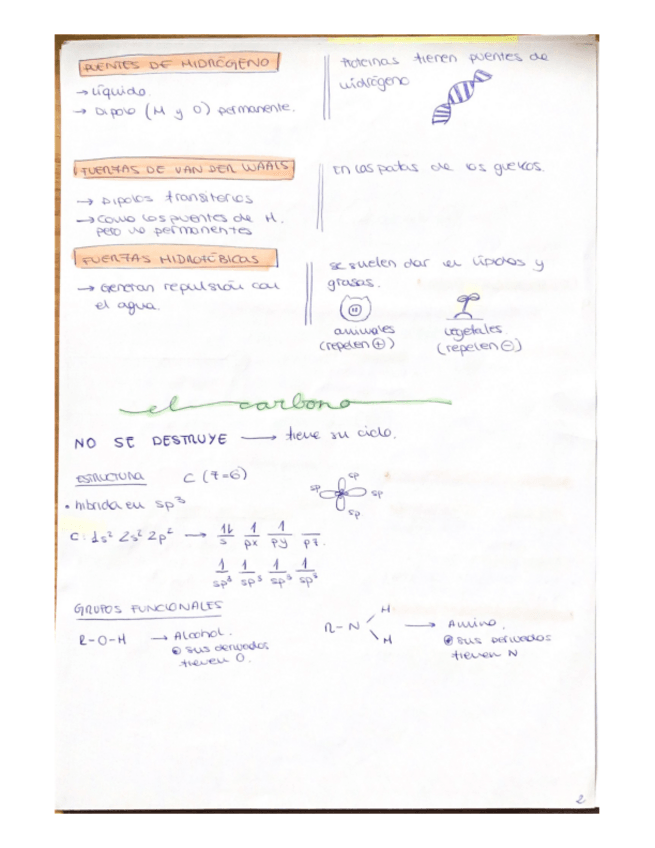 PUENTES DE HIDRÓGENO
→ Líquido.
→ Dipolo (H y O) permanente.
Proteínas tienen puentes de
hidrógeno
FUERZAS DE VAN DER WAALS
→ Dipolos transitorios
→ Como los puentes de H.
pero no permanentes
En las patas de los guekos.
FUERZAS HIDROFÓBICAS
→ Generan repulsión con
el agua.
se suelen dar en lípidos y
grasas.
animales
(repelen ⊕)
vegetales
(repelen ⊖)
el carbono
NO SE DESTRUYE → tiene su ciclo.
ESTRUCTURA C (Z=6)
• híbrida en sp³
sp sp sp sp
C: 1s² 2s² 2p² → 1l 1 1
s px py pz.
1 1 1 1
sp³ sp³ sp³ sp³
GRUPOS FUNCIONALES
R-O-H → Alcohol.
sus derivados
tienen O.
R-N H H → Amino.
sus derivados
tienen N
2